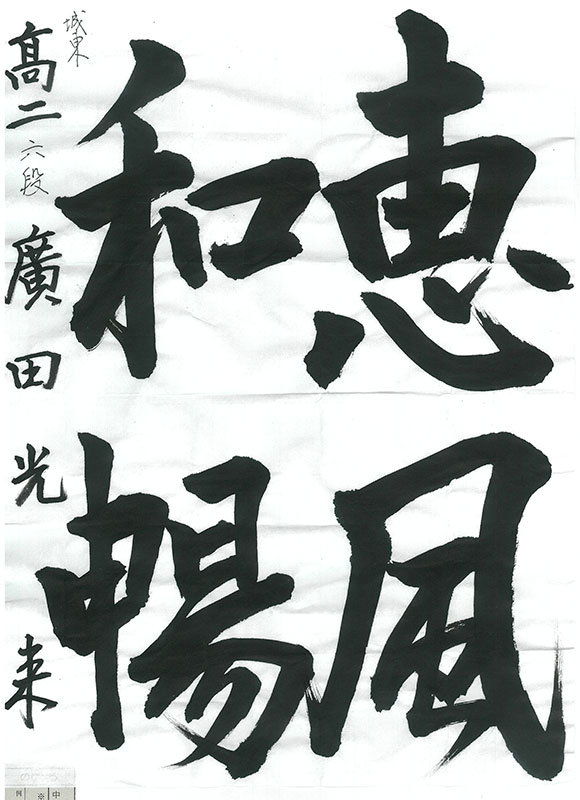 恵風
和暢
城東
髙二六段廣田光来
例 ※ 中